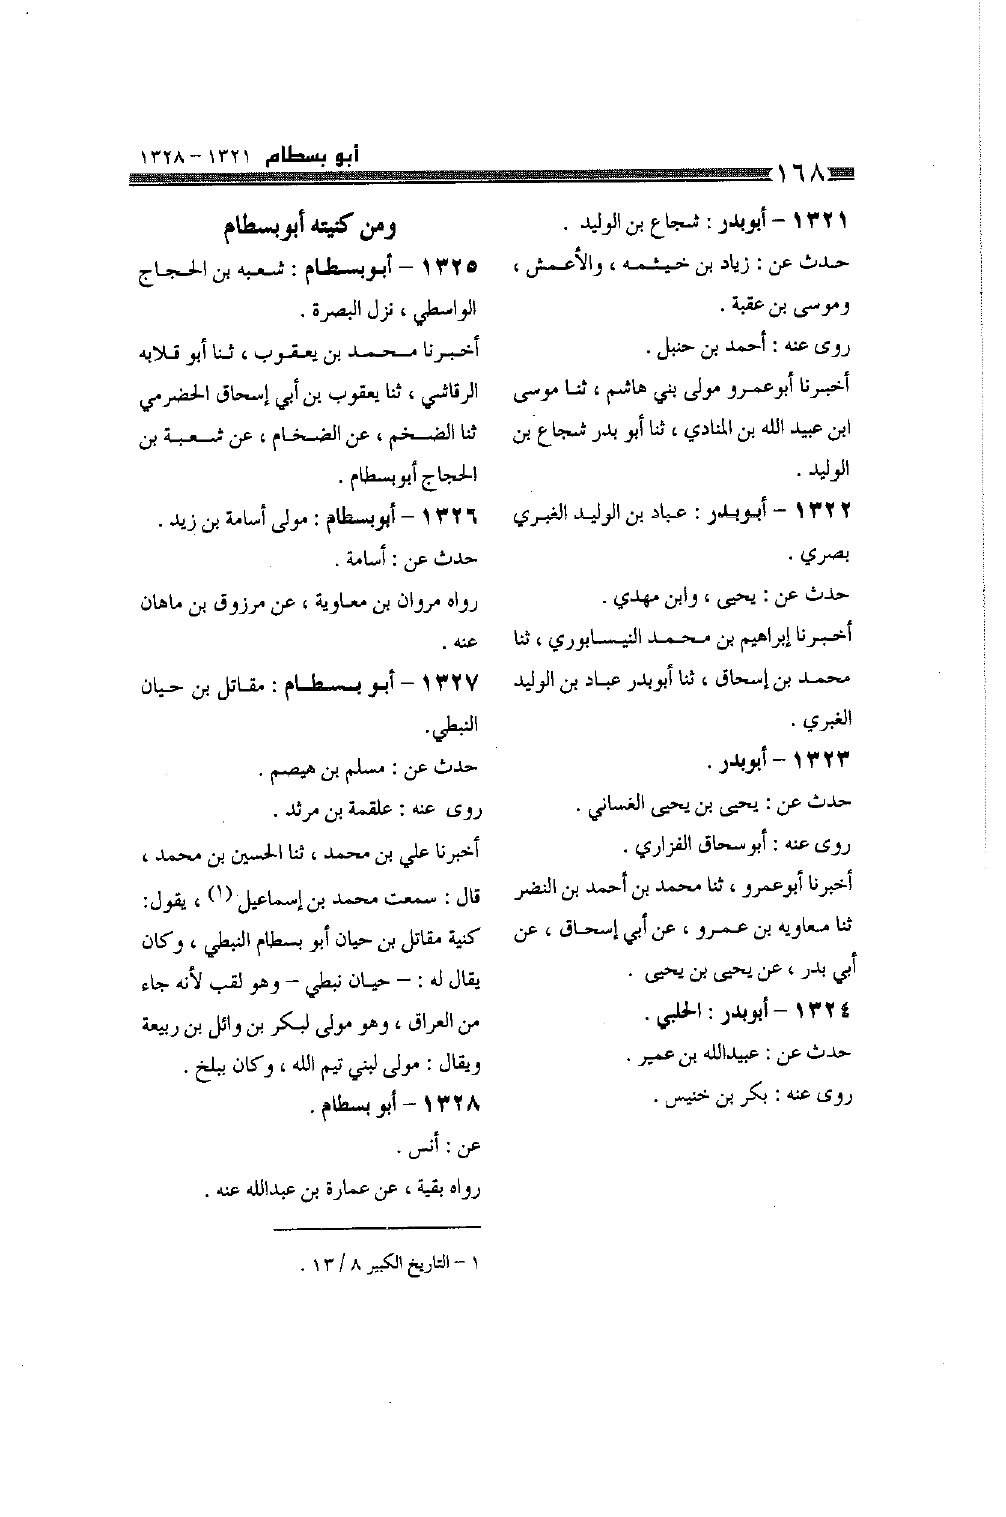 أبو بسطام ١٣٢١ – ١٣٢٨
١٦٨
١٣٢١ – أبوبدر : شجاع بن الوليد .
حدث عن : زياد بن خيثمه ، والأعمش ،
وموسى بن عقبة .
روى عنه : أحمد بن حنبل .
أخبرنا أبوعمرو مولى بني هاشم ، ثنا موسى
ابن عبيد الله بن المنادي ، ثنا أبو بدر شجاع بن
الوليد .
١٣٢٢ – أبوبدر : عباد بن الوليد الغبري
بصري .
حدث عن : يحيى ، وابن مهدي .
أخبرنا إبراهيم بن محمد النيسابوري ، ثنا
محمد بن إسحاق ، ثنا أبوبدر عباد بن الوليد
الغبري .
١٣٢٣ – أبوبدر .
حدث عن : يحيى بن يحيى الغساني .
روى عنه : أبوسحاق الفزاري .
أخبرنا أبوعمرو ، ثنا محمد بن أحمد بن النضر
ثنا معاويه بن عمرو ، عن أبي إسحاق ، عن
أبي بدر ، عن يحيى بن يحيى .
١٣٢٤ – أبوبدر : الحلبي .
حدث عن : عبيدالله بن عمير .
روى عنه : بكر بن خنيس .
ومن كنيته أبوبسطام
١٣٢٥ – أبوبسطام : شعبه بن الحجاج
الواسطي ، نزل البصرة .
أخبرنا محمد بن يعقوب ، ثنا أبو قلابه
الرقاشي ، ثنا يعقوب بن أبي إسحاق الحضرمي
ثنا الضخم ، عن الضخام ، عن شعبة بن
الحجاج أبوبسطام .
١٣٢٦ – أبوبسطام : مولى أسامة بن زيد .
حدث عن : أسامة .
رواه مروان بن معاوية ، عن مرزوق بن ماهان
عنه .
١٣٢٧ – أبو بسطام : مقاتل بن حيان
النبطي.
حدث عن : مسلم بن هيصم .
روى عنه : علقمة بن مرثد .
أخبرنا علي بن محمد ، ثنا الحسين بن محمد ،
قال : سمعت محمد بن إسماعيل (١) ، يقول:
كنية مقاتل بن حيان أبو بسطام النبطي ، وكان
يقال له : – حيان نبطي – وهو لقب لأنه جاء
من العراق ، وهو مولى لبكر بن وائل بن ربيعة
ويقال : مولى لبني تيم الله ، وكان ببلخ .
١٣٢٨ – أبو بسطام .
عن : أنس .
رواه بقية ، عن عمارة بن عبدالله عنه .
١ – التاريخ الكبير ٨ / ١٣ .